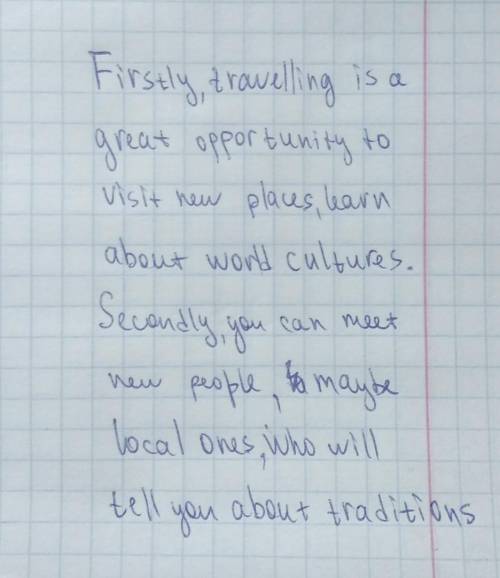 Firstly, travelling is a
great opportunity to
visit new places, learn
about world cultures.
Secondly, you can meet
new people, maybe
local ones, who will
tell you about traditions